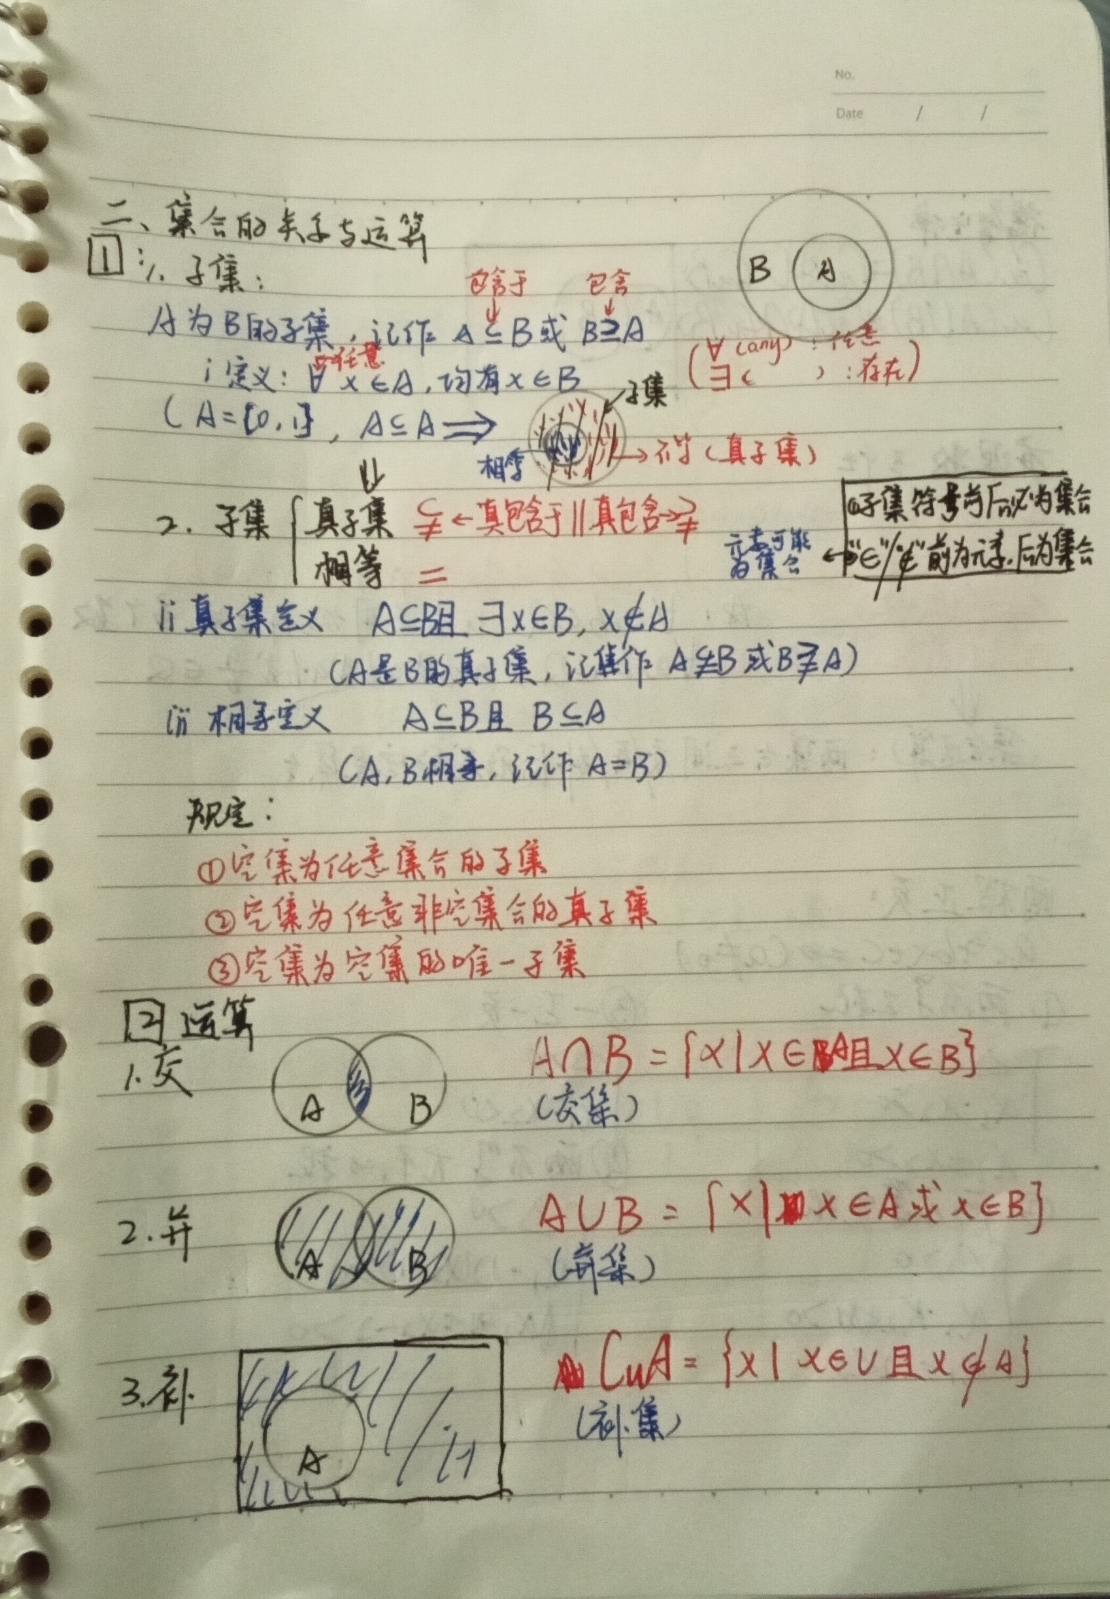 No.
Date / /
二、集合的关系与运算
1 : 1. 子集：
包含于 包含
B A
A为B的子集，记作 A⊆B或 B⊇A
任意
i 定义：∀x∈A，均有x∈B
(∀(any)：任意
∃( )：存在)
(A={0,1}，A⊆A ⇒
子集
相等
不等（真子集）
2. 子集 { 真子集 ⫋ ←真包含于||真包含→ ⫌
相等 =
①子集符号前后必为集合
②"∈"/"∉"前为元素，后为集合
元素可能
为集合
ii 真子集定义 A⊆B且 ∃x∈B, x∉A
(A是B的真子集，记作 A⫋B 或B⫌A)
iii 相等定义 A⊆B且 B⊆A
(A, B相等，记作 A=B)
规定：
①空集为任意集合的子集
②空集为任意非空集合的真子集
③空集为空集的唯一子集
2 运算
1.交 A B A∩B={x|x∈A且x∈B}
(交集)
2.并 A B A∪B={x|x∈A或x∈B}
(并集)
3.补 A CuA={x|x∈U且x∉A}
(补集)